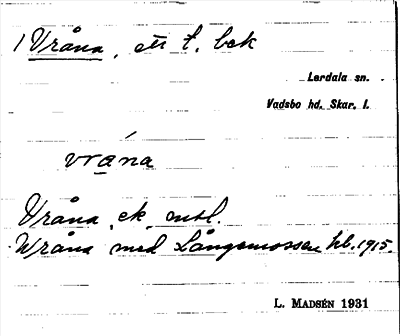 1 Vråna, ett t. bek
Lerdala sn.
Vadsbo hd. Skar. l.
vrána
Vråna, ek, mtl.
Wråna med Långemossen hb. 1915.
L. MADSÉN 1931